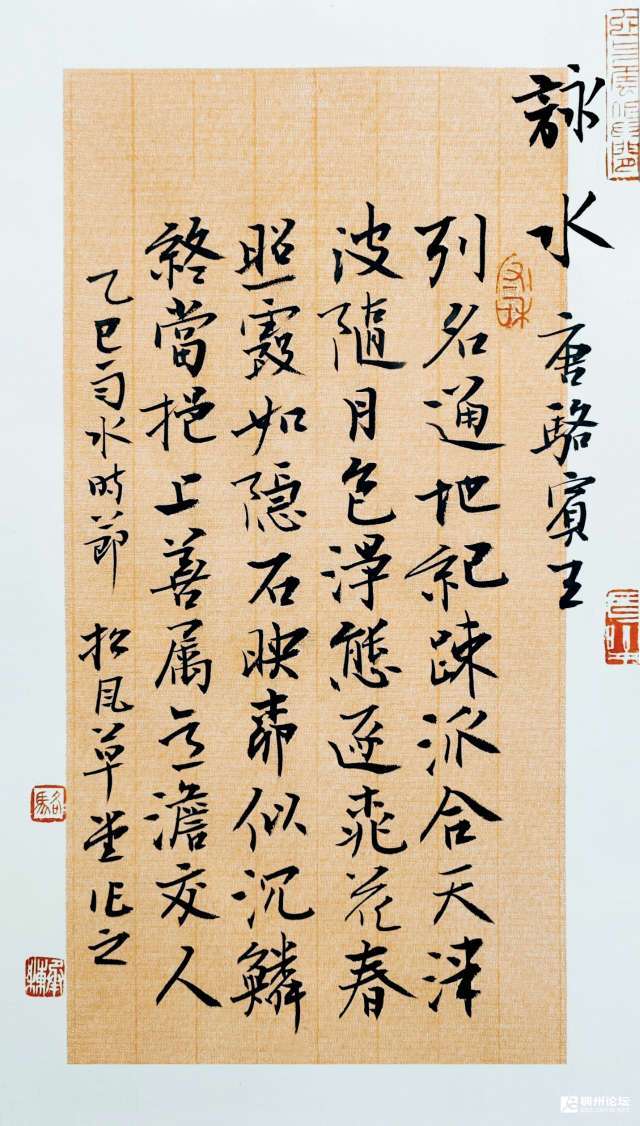 詠水 唐駱賓王
列名通地紀踈派合天津
波隨月色淨態逐桃花春
照霞如隐石映柳似沉鱗
終當挹上善属意澹交人
乙巳雨水时節 松风草堂作之
稠州论坛